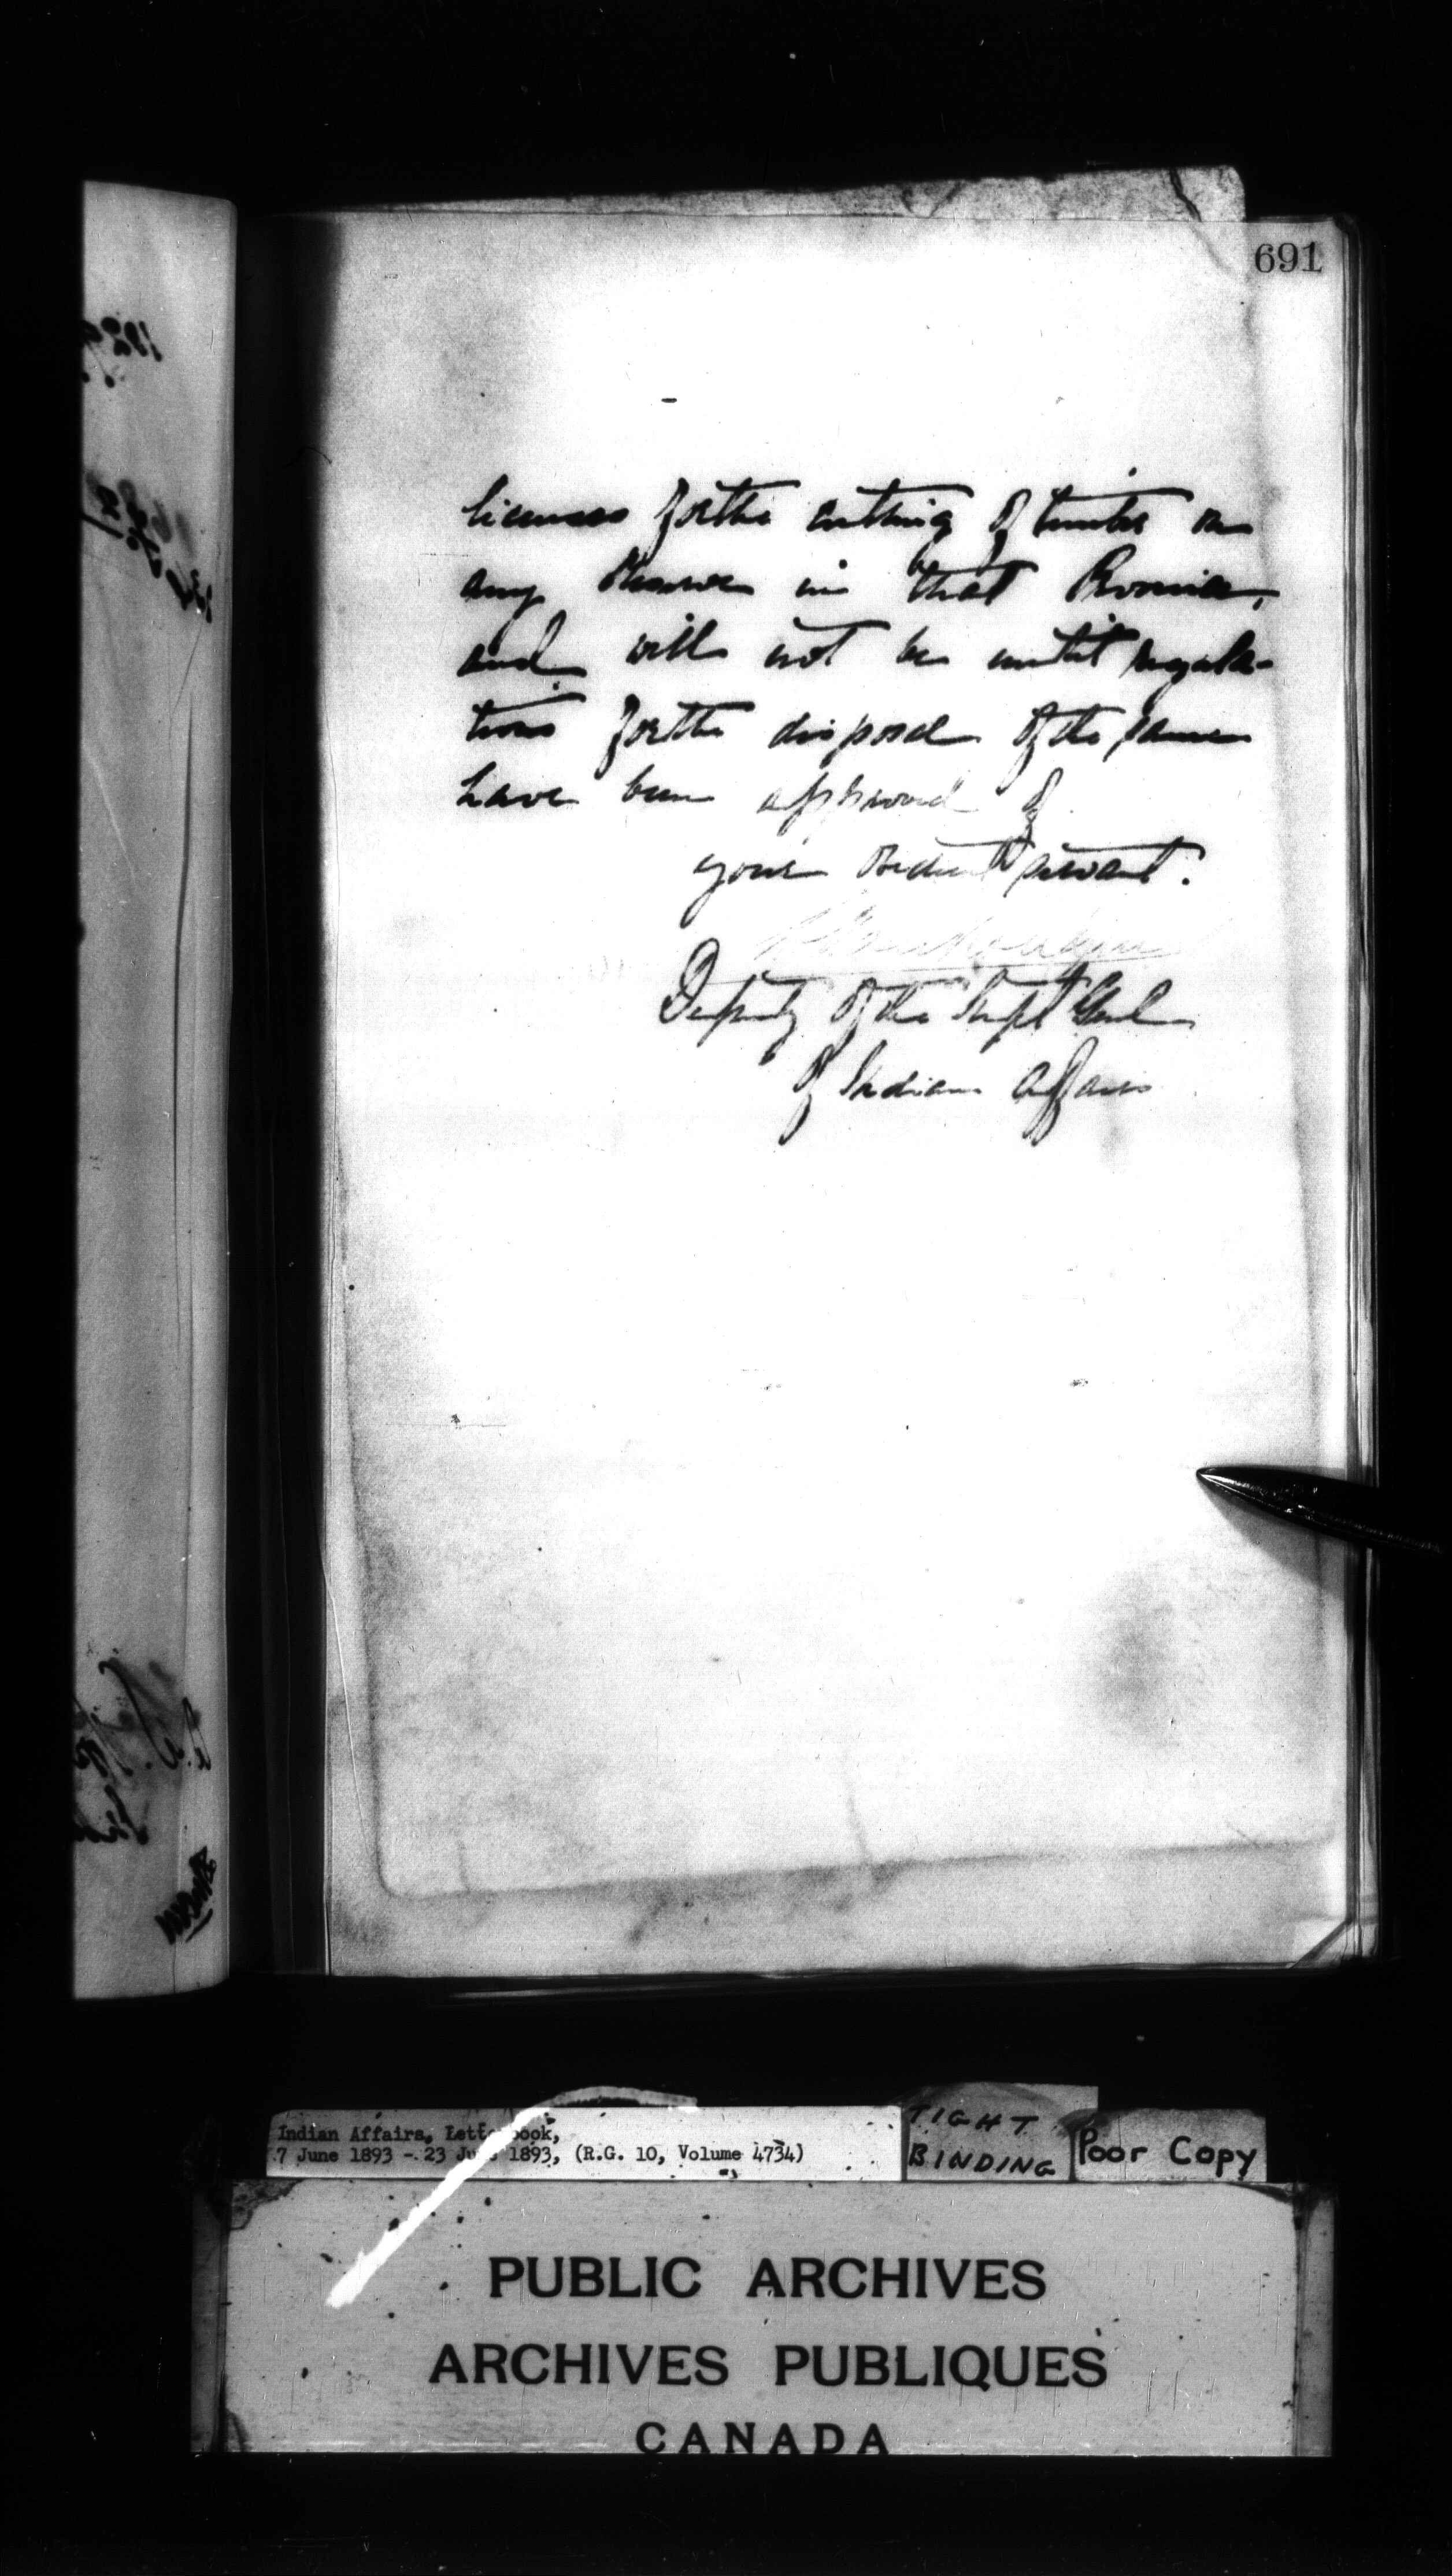 691
licenses for the cutting of timber on
any Reserve in that Province,
and will not be until regula-
tions for the disposal of the same
have been approved of
your obedient servant.
Deputy of the Supt Genl
of Indian Affairs
Indian Affairs, Letterbook,
7 June 1893 - 23 June 1893, (R.G. 10, Volume 4734)
TIGHT
BINDING
Poor Copy
PUBLIC ARCHIVES
ARCHIVES PUBLIQUES
CANADA